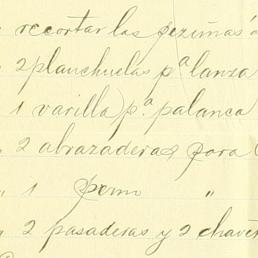 " recortar las pezuñas á
" 2 planchuelas pª lanza
" 1 varilla pª palanca
" 2 abrazaderas para
" 1 perno "
" 2 pasaderas y 2 chavet